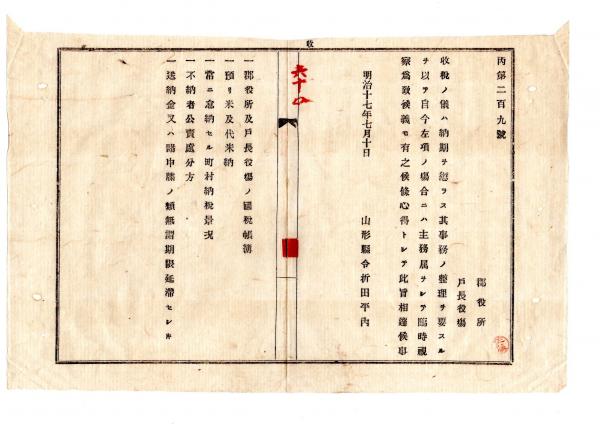 丙第二百九號
郡役所
戶長役場
收稅ノ儀ハ納期ヲ愆ラス其事務ノ整理ヲ要スル
ヲ以テ自今左項ノ場合ニハ主務属ヲシテ臨時視
察爲致候義モ有之候條心得トシテ此旨相達候事
明治十七年七月十日
山形縣令折田平內
收
六十四
一郡役所及戶長役場ノ國稅帳簿
一預リ米及代米納
一常ニ怠納セル町村納稅景况
一不納者公賣處分方
一送納金又ハ諸申牒ノ類無謂期限延滯セシキ